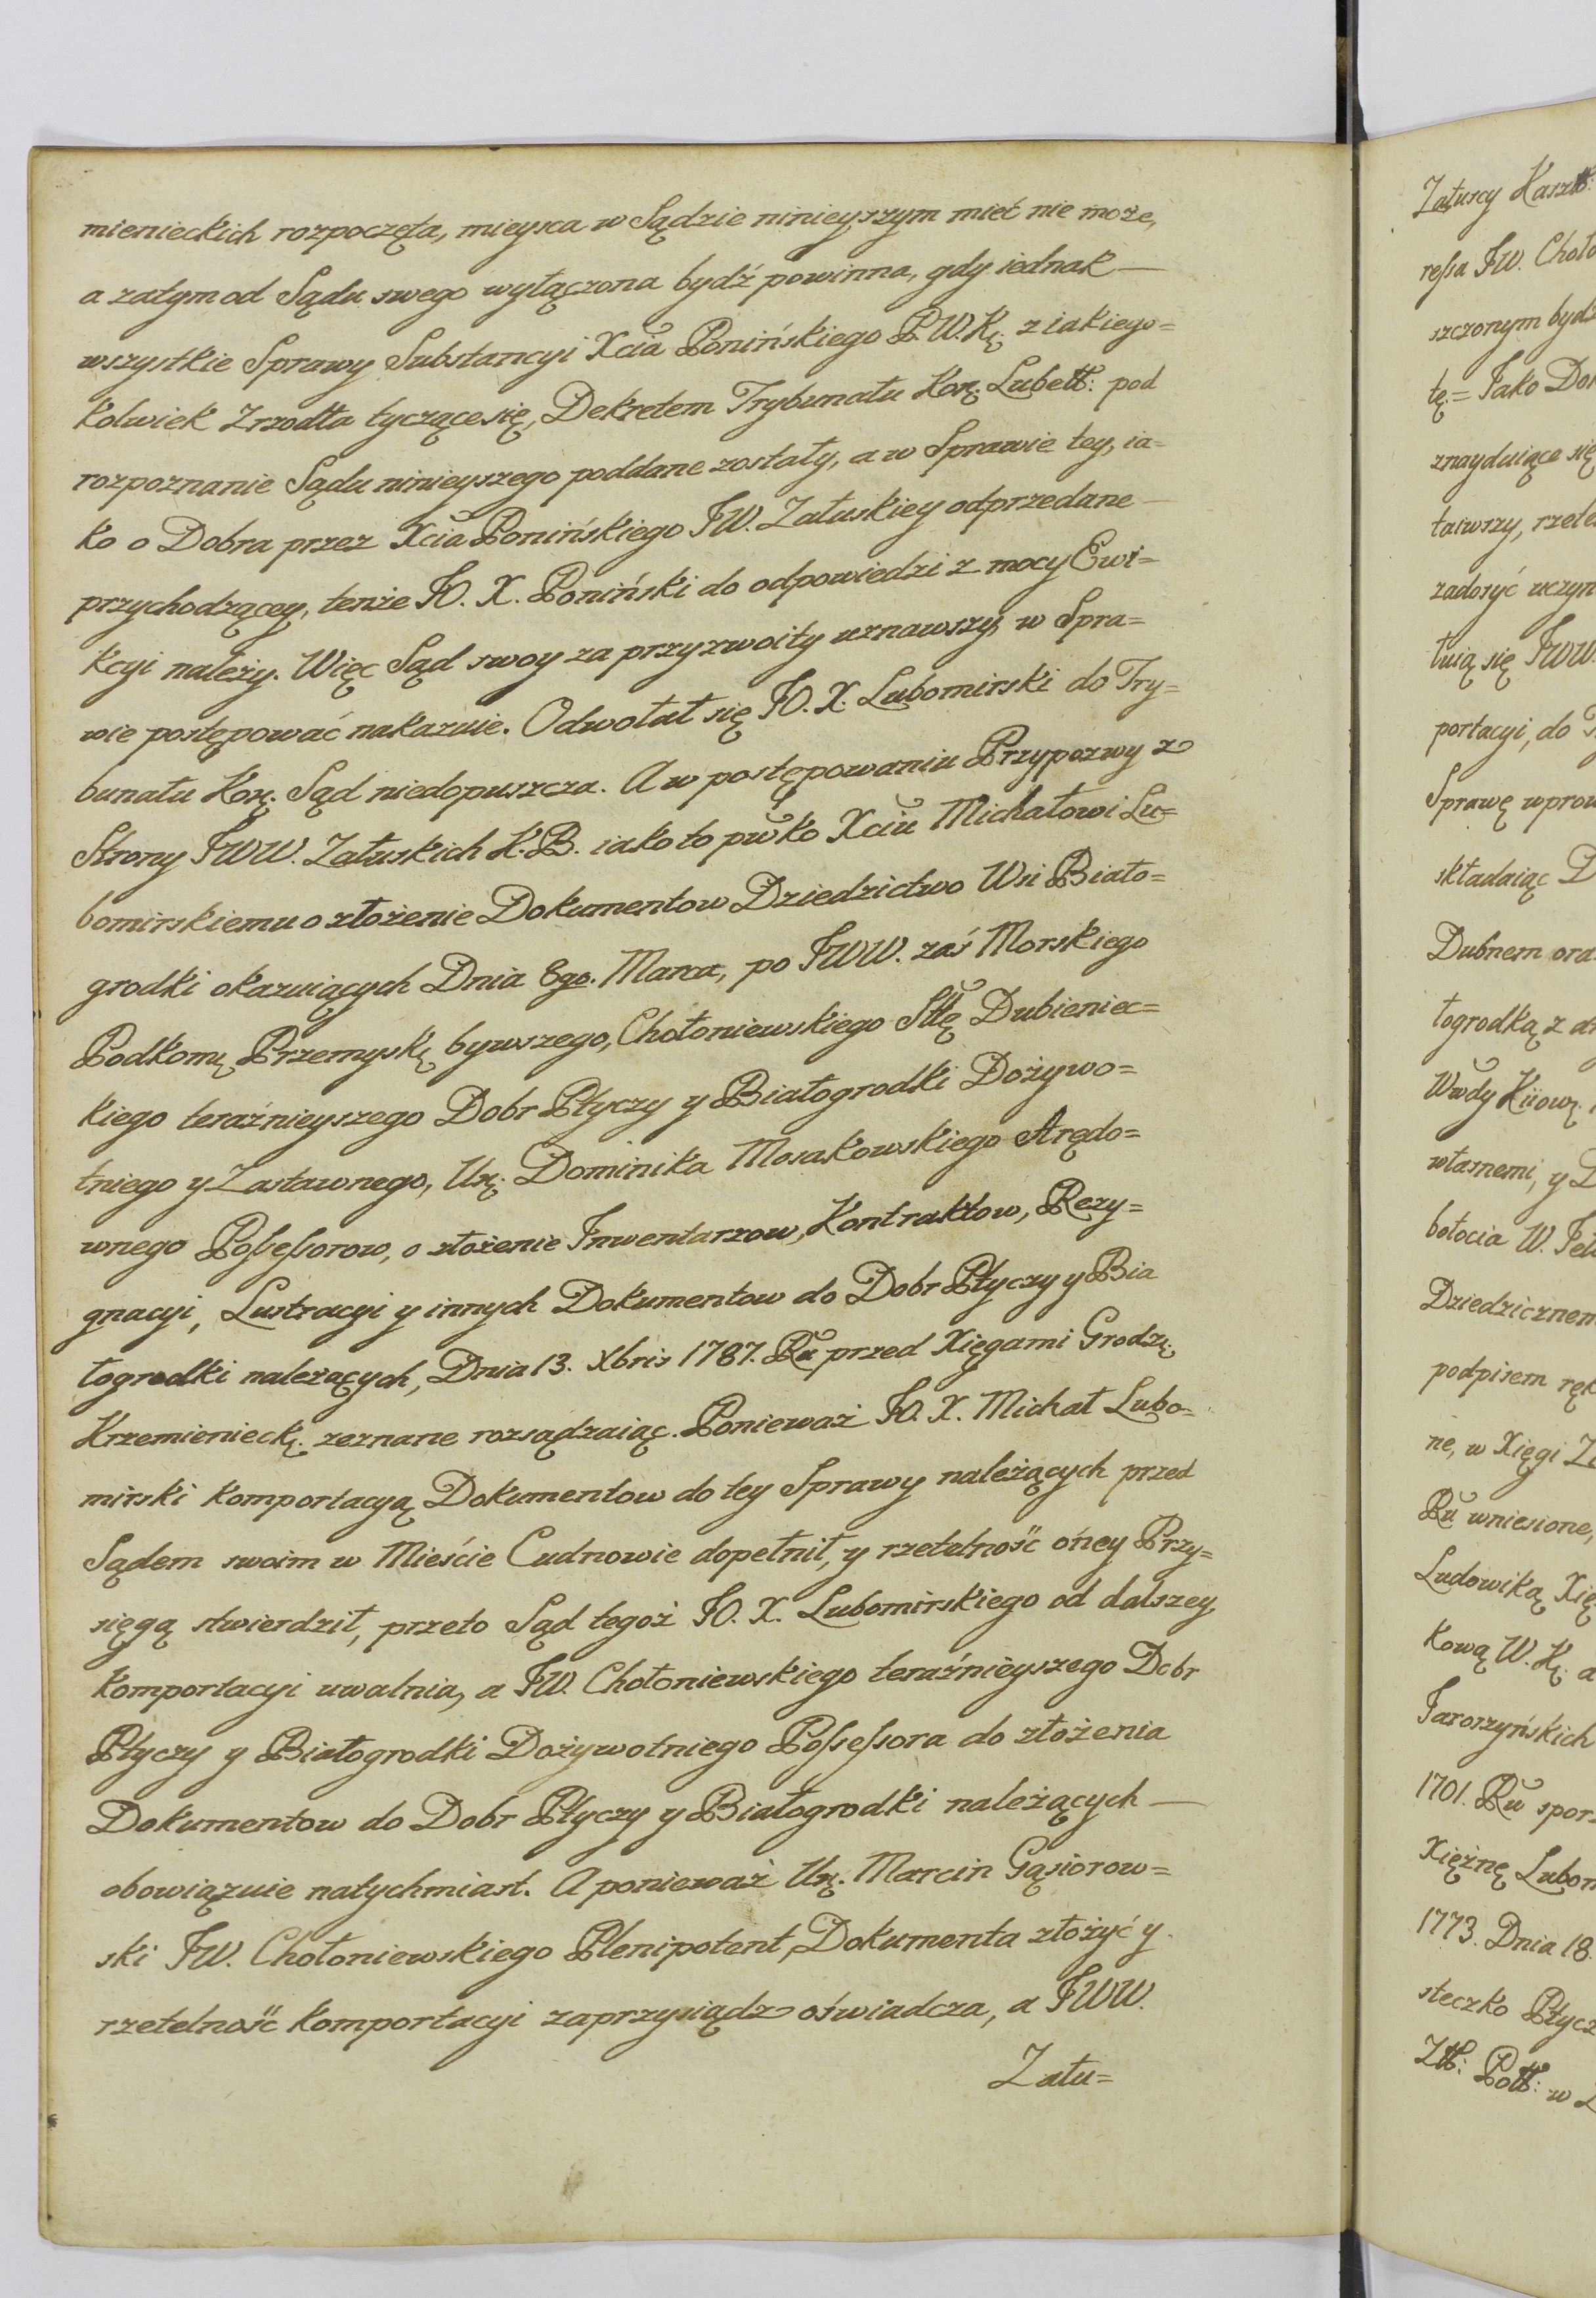 mienieckich rozpoczęta, mieysca w Sądzie ninieyszym mieć nie może,
a zatym od Sądu swego wyłączona bydź powinna, gdy iednak —
wszystkie Sprawy Substancyi Xcia Ponińskiego P.W.K. z iakiego=
kolwiek Zrzodła tyczące się, Dekretem Trybunału Kor. Lubell: pod
rozpoznanie Sądu ninieyszego poddane zostały, a w Sprawie tey, ia=
ko o Dobra przez Xcia Ponińskiego JW. Załuskiey odprzedane —
przychodzącey, tenże JO. X. Poniński do odpowiedzi z mocy Ewi=
kcyi należy. Więc Sąd swoy za przyzwoity uznawszy, w Spra=
wie postępować nakazuie. Odwołał się JO. X. Lubomirski do Try=
bunału Kor. Sąd niedopuszcza. A w postępowaniu Przypozwy z
Strony JWW. Załuskich K.B. iako to pwko Xciu Michałowi Lu=
bomirskiemu o złożenie Dokumentow Dziedzictwo Wsi Biało=
grodki okazuiących Dnia 8go. Marca, po JWW. zaś Morskiego
Podkom. Przemysk. bywszego, Chołoniewskiego Stt. Dubieniec=
kiego teraźnieyszego Dobr Płyczy y Białogrodki Dożywo=
tniego y Zastawnego, Ur. Dominika Mosakowskiego Arędo=
wnego Possessorow, o złożenie Inwentarzow, Kontraktow, Rezy=
gnacyi, Lustracyi y innych Dokumentow do Dobr Płyczy y Bia
łogrodki należących, Dnia 13. Xbris 1787. Ru przed Xięgami Grodz.
Krzemienieck. zeznane rozsądzaiąc. Ponieważ JO. X. Michał Lubo=
mirski komportacyą Dokumentow do tey Sprawy należących przed
Sądem swoim w Mieście Cudnowie dopełnił, y rzetelność oney Przy=
sięgą stwierdził, przeto Sąd tegoż JO. X. Lubomirskiego od dalszey
komportacyi uwalnia, a JW. Chołoniewskiego teraźnieyszego Dobr
Płyczy y Białogrodki Dożywotniego Possessora do złożenia
Dokumentow do Dobr Płyczy y Białogrodki należących —
obowiązuie natychmiast. A ponieważ Ur. Marcin Gąsiorow=
ski JW. Chołoniewskiego Plenipotent, Dokumenta złożyć y
rzetelność komportacyi zaprzysiądz oświadcza, a JWW.
Zału=
Załuscy Kaszt:
ressa JW. Choło
szczonym bydź
tę = Jako Do
znayduiące się
taiwszy, rzete
zadosyć uczyn
tuią się JWW
portacyi, do
Sprawę wprow
składaiąc D
Dubnem ora
łogrodką z d
Wwdy Kiiow.
własnemi, y
bołocia W. Fel
Dziedzicznem
podpisem ręk
ne, w Xięgi Z
Ru wniesione,
Ludowiką Xię
kową W. K. a
Jaroszyńskich
1701. Ru spor
Xiężnę Lubom
1773. Dnia 18.
steczko Płycz
Zll: Poll: w